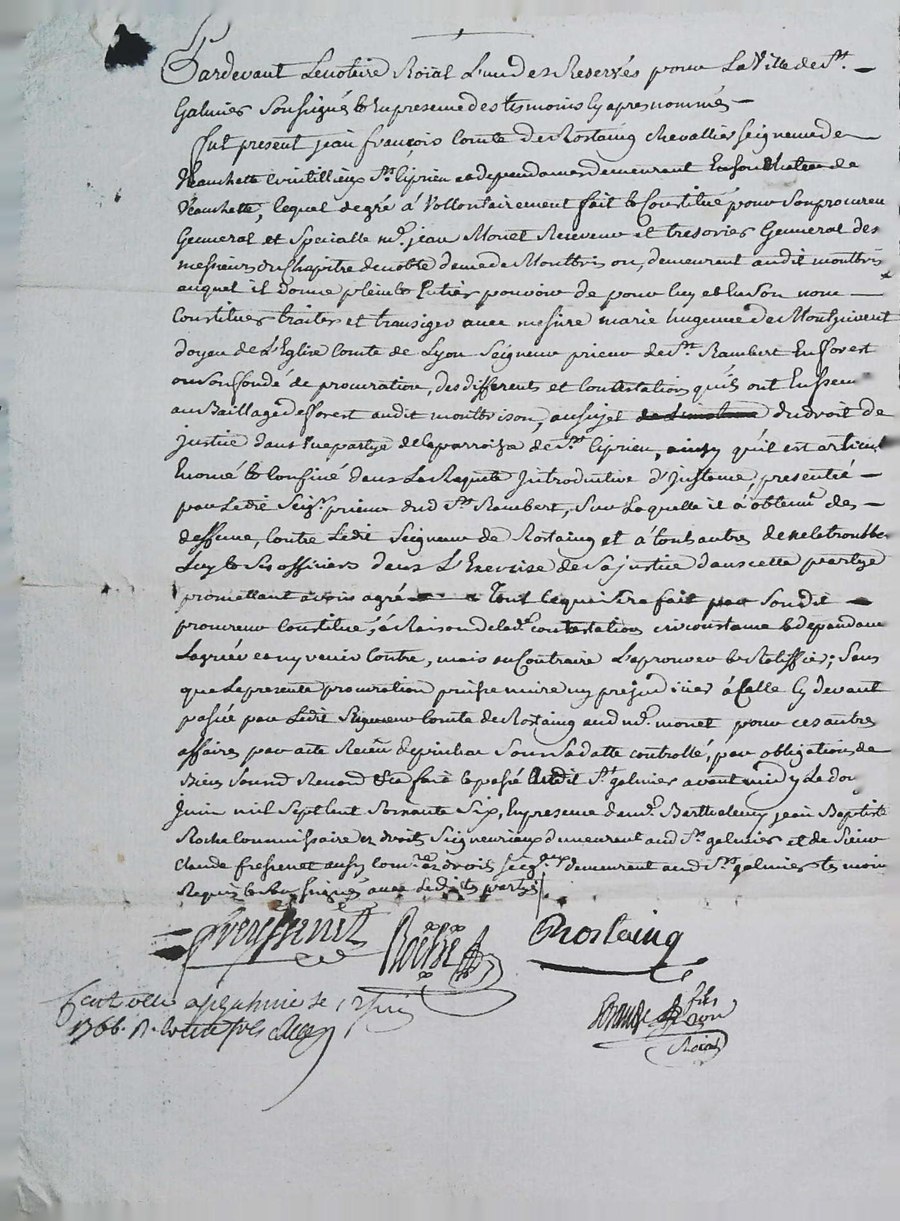 Pardevant Lenotaire Roial L'un des Reservés pour La Ville de St.
Galmier Sousigné & En presence des tesmoins Cy apres nommés
fut present jean françois Comte de Rostaing chevallier seigneur de
Veauchette Cuintillieux St. Ciprien et dependances demeurant En son chateau de
Veauchette, lequel de gré á Vollontairement fait & Constitué pour son procureu
Genneral et Specialle mr. jean Monet Receveur et tresorier Genneral des
messieurs du Chapitre de notre dame de Montbrison, demeurant audit montbris
auquel il donne plein & Entier pouvoir de pour luy et En son nom
Constituer traiter et transiger avec messire marie hugenne de Montjuvent
doyen de L'Eglise Comte de Lyon Seigneur prieur de St. Rambert En forest
ou son fondé de procuration, des differents et Contestations qu'ils ont Ensem
au Baillage de forest audit montbrison, au sujet du droit de
justice dans une partye de la parroisse de St. Ciprien, ainsy qu'il est articul
Enoncé & Confiné dans La Requete Introductive d'Instance, presentée
par Ledit Seigr. prieur dud St. Rambert, Sur Laquelle il á obtenu des
deffence, Contre Ledit Seigneur de Rostaing et á tout autres de ne le troubler
Luy & Ses officiers dans L'Exercise de Sa justice dans cette partye
promettant avoir agré Tout Ce qui Sera fait par Son dit
procureur Constitué, á Raison de lade. contestation circonstance & dependance
L'agréer et ny venir Contre, mais au Contraire L'aprouver & Ratiffier; Sans
que La presente procuration puisse nuire ny prejudicier á Celle Cy devant
passée par Ledit Seigneur Comte de Rostaing aud mr. monet pour ces autres
affaires par acte Receu Depinhac Sous Sa datte controllé, par obligation de
Biens Soumd Renond Et Ce fait & passé Audit St. galmier avant midy Le dou
Juin mil Sept Cent Soixante Six, En presence de mr. Barthelemy jean Baptiste
Roche Commissaire ez droits Seigneuriaux demeurant aud St. galmier et de Sieur
Claude fressenet aussy Comre. ez droits seigrx. demeurant aud St. galmier tesmoin
Requis & Sousignés avec Ledites partie
freyssenet Roche Rostaing
fils
Roial
1766.